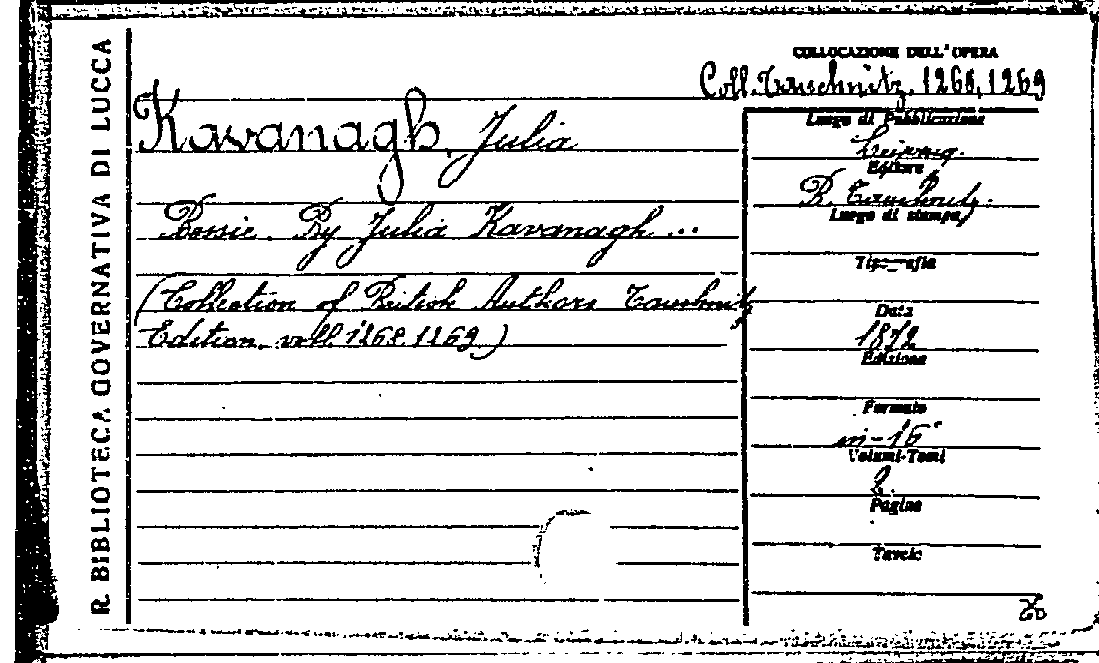 R. BIBLIOTECA GOVERNATIVA DI LUCCA
COLLOCAZIONE DELL'OPERA
Coll. Tauschnitz. 1268, 1269
Kavanagh, Julia
Bessie. By Julia Kavanagh ...
(Collection of British Authors Tauschnitz
Edition. voll. 1268. 1269.)
Luogo di Pubblicazione
Leipzig.
Editore
B. Tauchnitz.
Luogo di stampa
Tipografia
Data
1872
Edizione
Formato
in-16°
Volumi-Tomi
2.
Pagine
Tavole